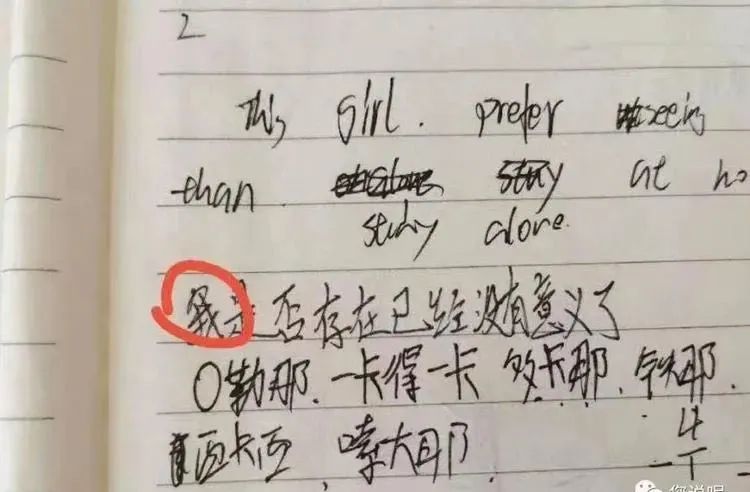 2
This girl. prefer seeing
than. stay at ho
study alone.
我是否存在已经没有意义了
O勒那.一卡得一卡 效卡那.铁那.
西卡西.嗦大耶.
4
您说呢